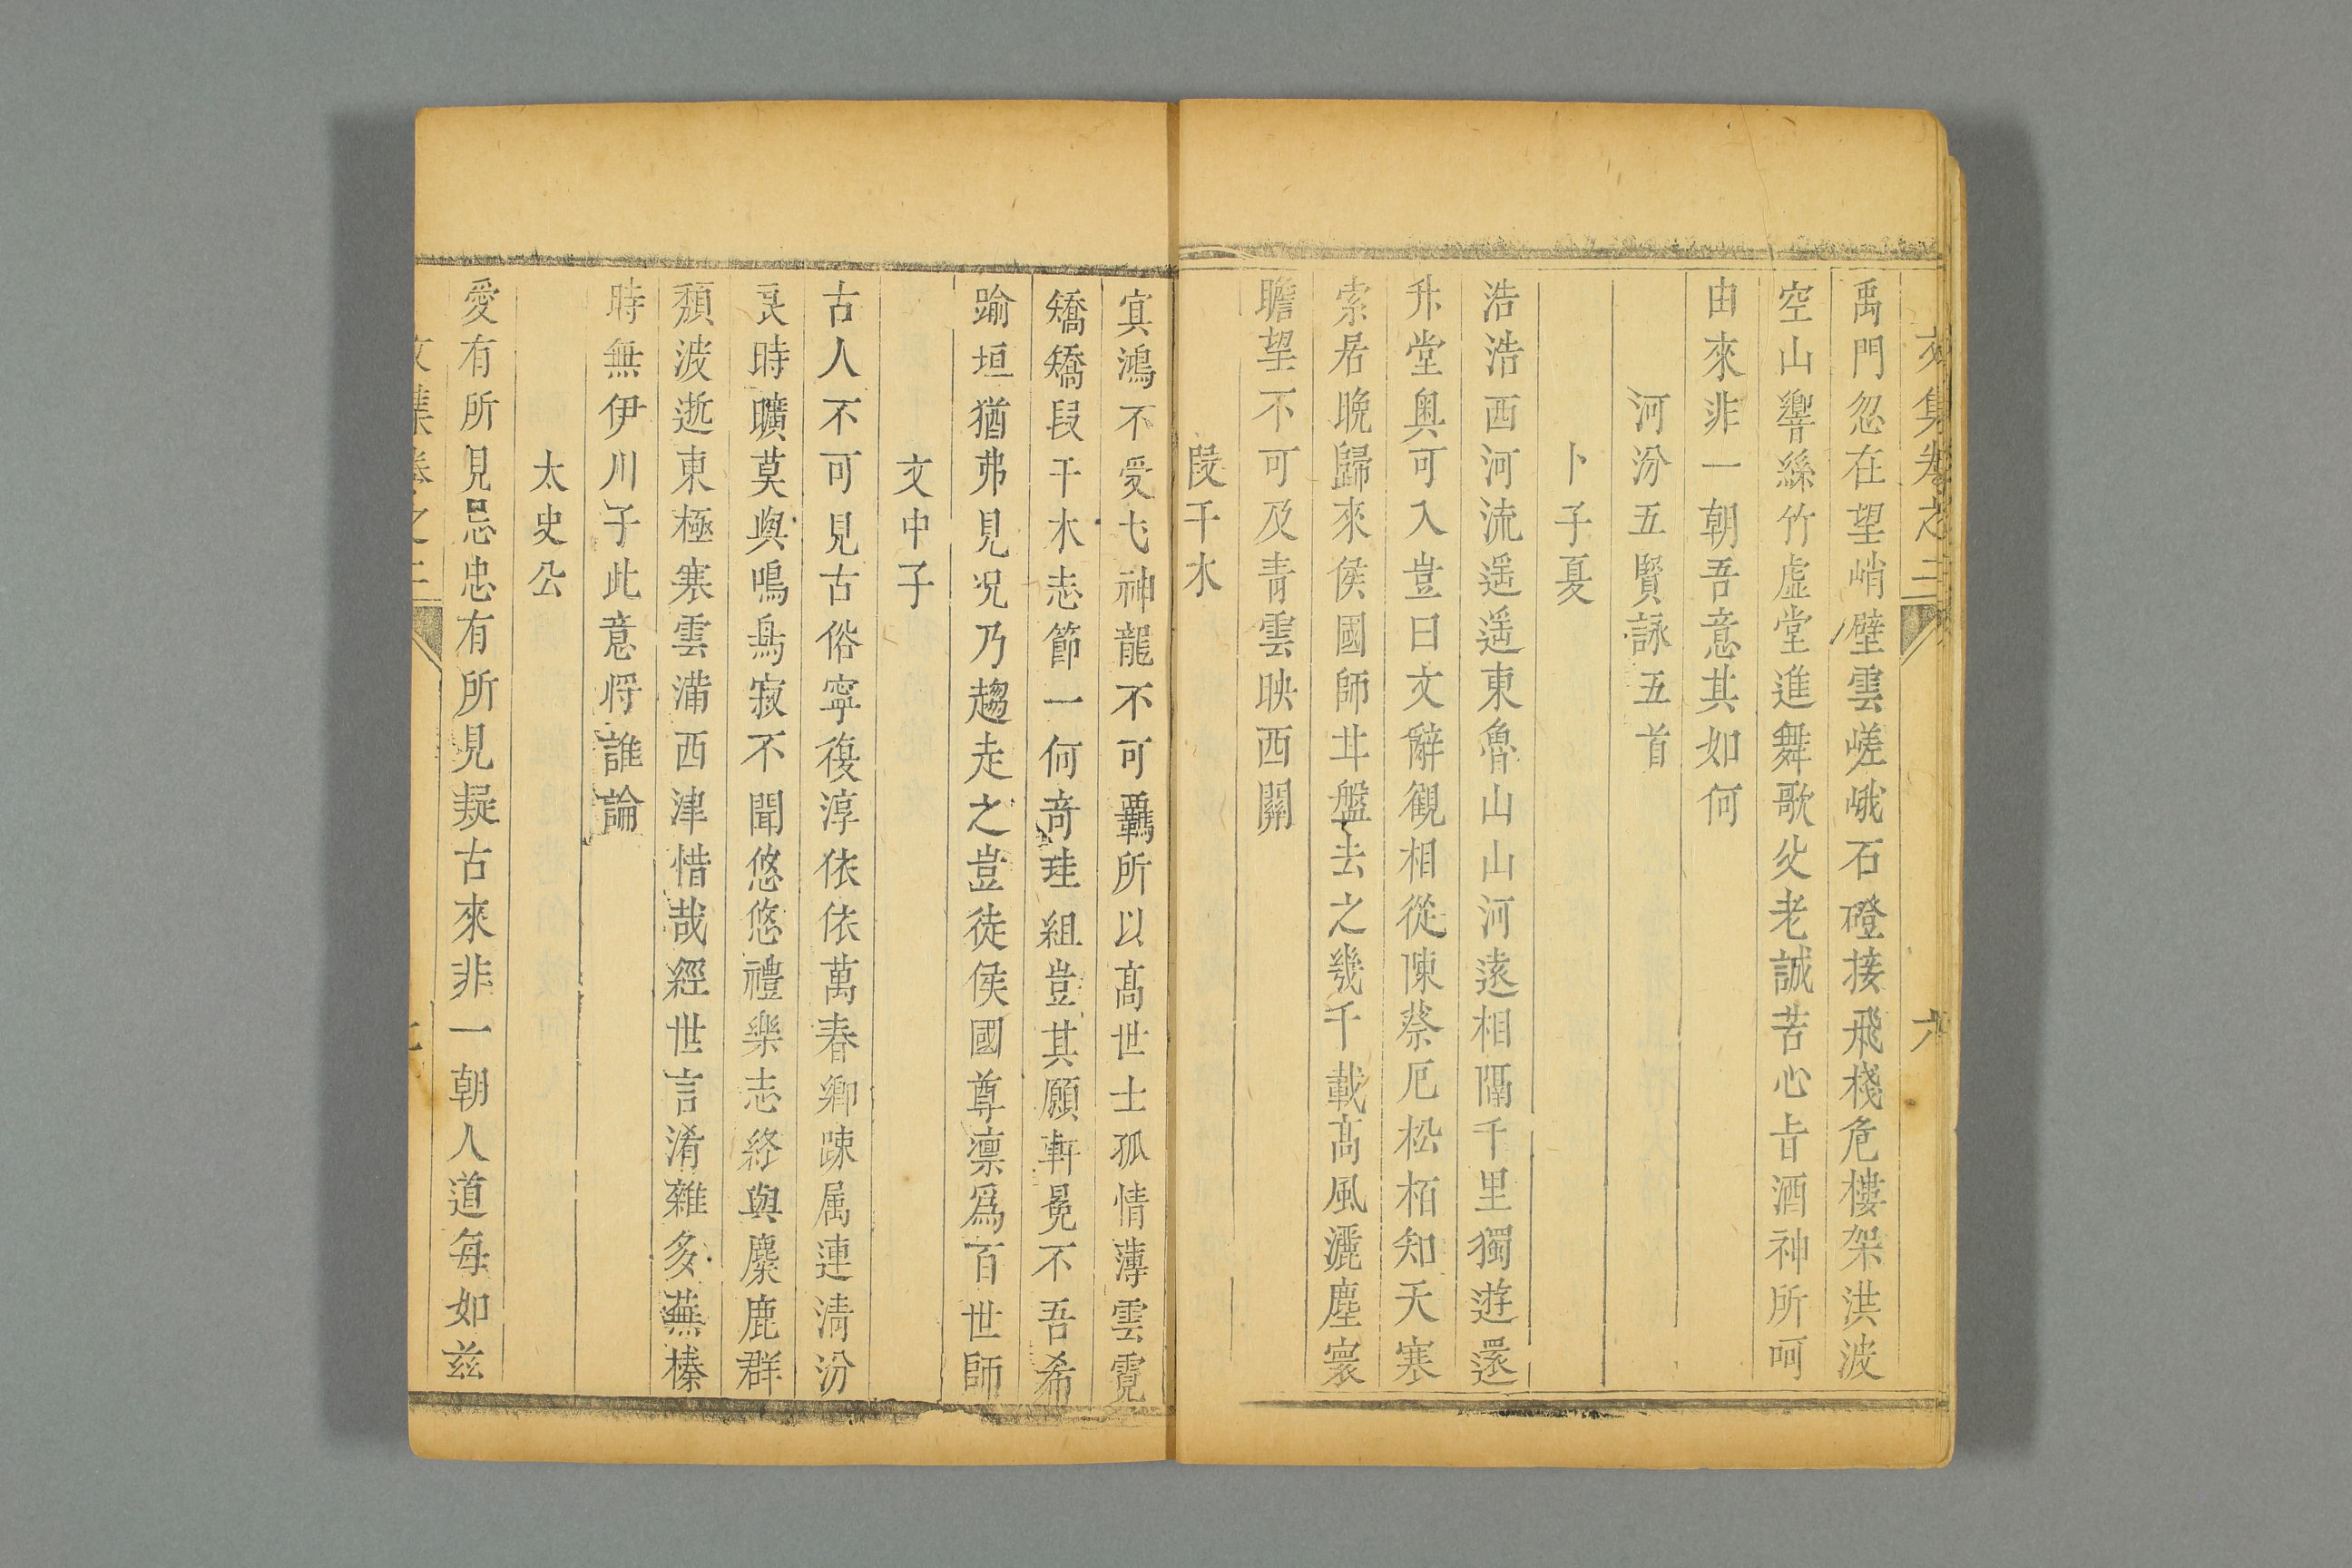 文集卷之三 六
禹門忽在望峭壁雲嵯峨石磴接飛棧危樓架洪波
空山響絲竹虛堂進舞歌父老誠苦心旨酒神所呵
由來非一朝吾意其如何
河汾五賢詠五首
卜子夏
浩浩西河流遥遥東魯山山河遠相隔千里獨遊還
升堂奥可入豈曰文辭觀相從陳蔡厄松栢知天寒
索居晩歸來侯國師丠盤去之幾千載髙風灑塵寰
瞻望不可及青雲映西關
段干木
寘鴻不受弋神龍不可覊所以髙世士孤情薄雲霓
矯矯段干木志節一何竒珪組豈其願軒冕不吾希
踰垣猶弗見况乃趨走之豈徒侯國尊凛爲百世師
文中子
古人不可見古俗寧復淳依依萬春鄉踈属連清汾
良時曠莫與鳴鳥寂不聞悠悠禮樂志終與麋鹿群
頹波逝東極寒雲滿西津惜哉經世言淆雜多蕪榛
時無伊川子此意将誰論
太史公
愛有所見忌忠有所見疑古來非一朝人道每如兹
文集卷之三